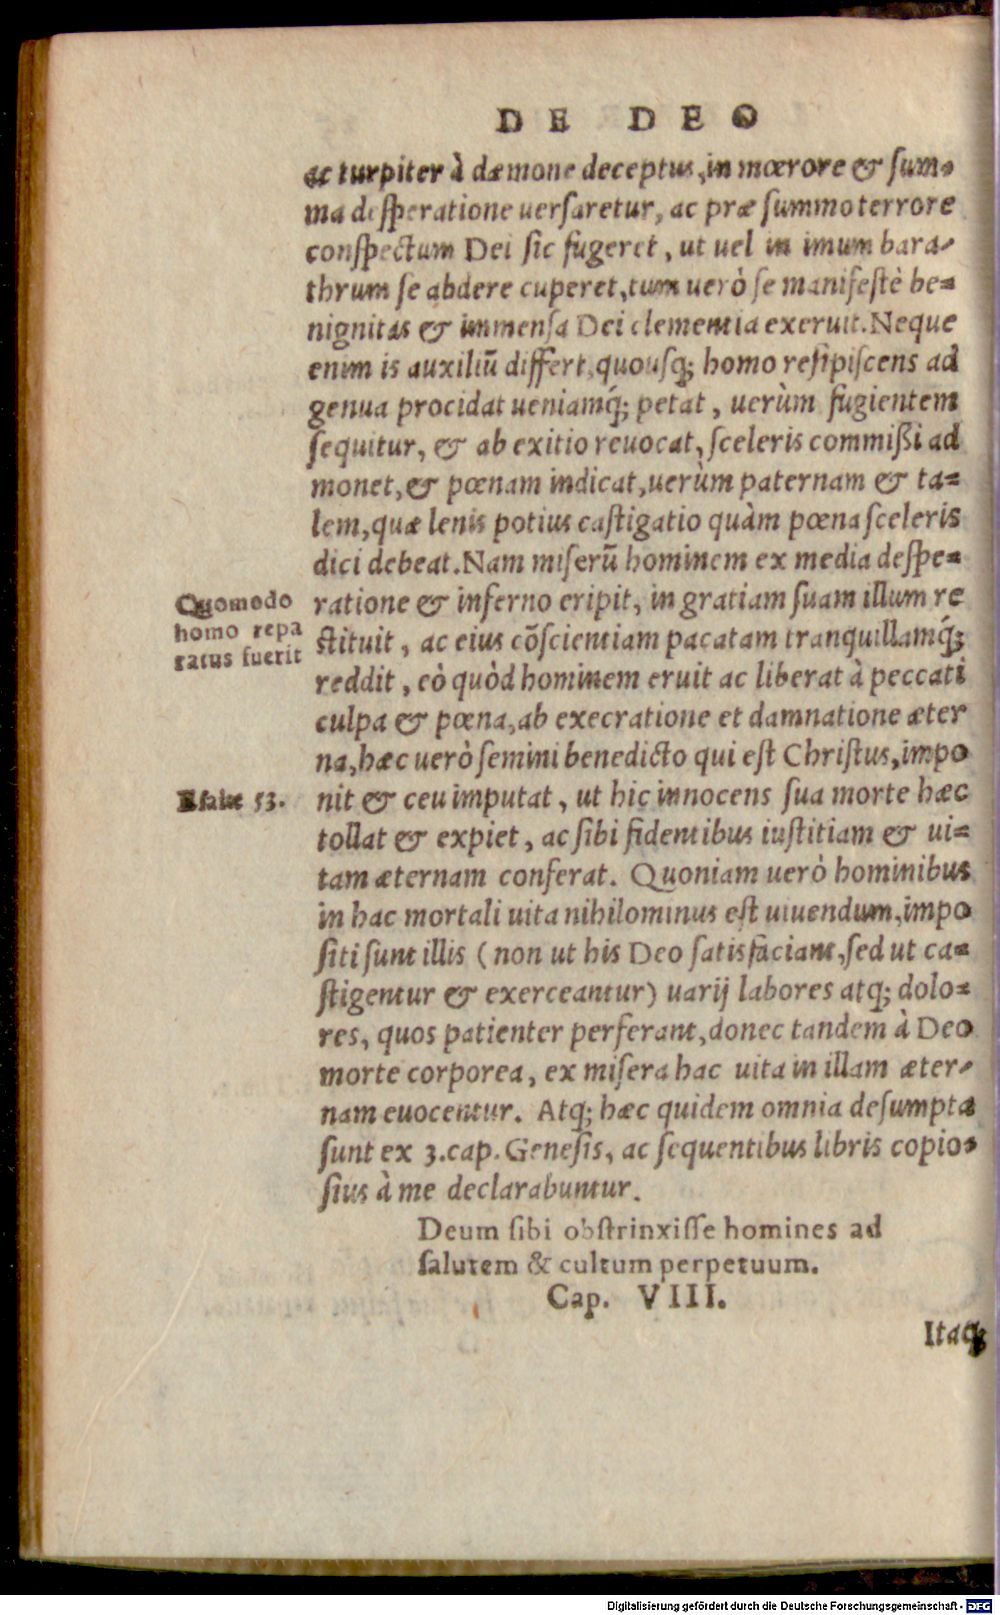 DE DEO
ac turpiter à dæmone deceptus, in mœrore & sum-
ma desperatione uersaretur, ac præ summo terrore
conspectum Dei sic fugeret, ut uel in imum bara-
thrum se abdere cuperet, tum uerò se manifestè be-
nignitas & immensa Dei clementia exeruit. Neque
enim is auxiliū differt, quousq; homo resipiscens ad
genua procidat ueniamq́; petat, uerùm fugientem
sequitur, & ab exitio reuocat, sceleris commißi ad
monet, & pœnam indicat, uerùm paternam & ta-
lem, quæ lenis potius castigatio quàm pœna sceleris
dici debeat. Nam miserū hominem ex media despe-
Quomodo
homo repa
ratus fuerit
ratione & inferno eripit, in gratiam suam illum re
stituit, ac eius cōscientiam pacatam tranquillamq́;
reddit, eò quòd hominem eruit ac liberat à peccati
culpa & pœna, ab execratione et damnatione æter
na, hæc uerò semini benedicto qui est Christus, impo
Esaiæ 53.
nit & ceu imputat, ut hic innocens sua morte hæc
tollat & expiet, ac sibi fidentibus iustitiam & ui-
tam æternam conferat. Quoniam uerò hominibus
in hac mortali uita nihilominus est uiuendum, impo
siti sunt illis (non ut his Deo satisfaciant, sed ut ca-
stigentur & exerceantur) uarij labores atq; dolo-
res, quos patienter perferant, donec tandem à Deo
morte corporea, ex misera hac uita in illam æter-
nam euocentur. Atq; hæc quidem omnia desumpta
sunt ex 3. cap. Genesis, ac sequentibus libris copio-
sius à me declarabuntur.
Deum sibi obstrinxisse homines ad
salutem & cultum perpetuum.
Cap. VIII.
Itaq;
Digitalisierung gefördert durch die Deutsche Forschungsgemeinschaft - DFG